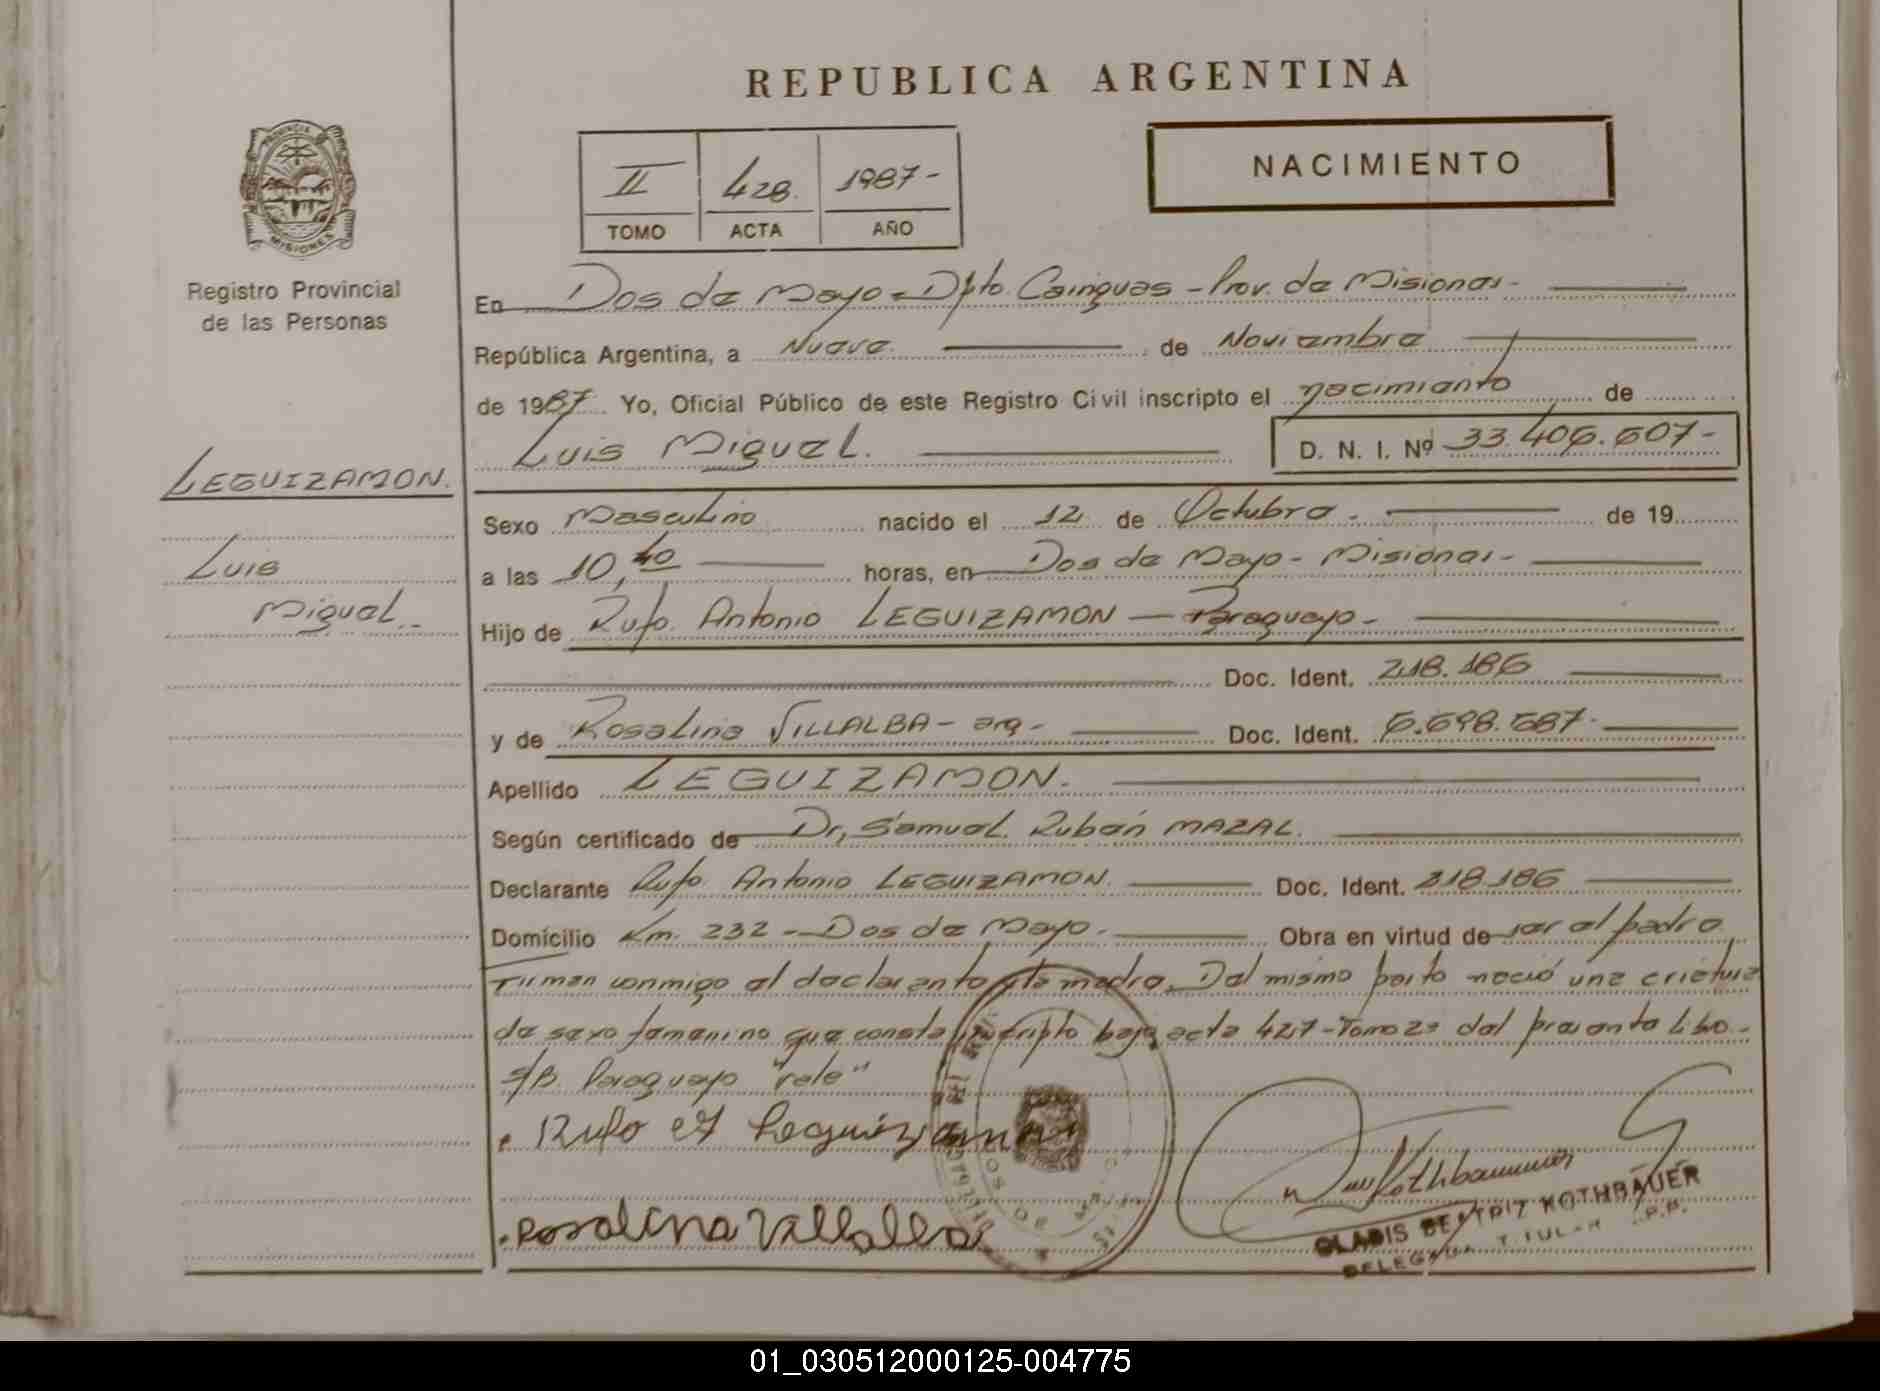 REPUBLICA ARGENTINA
PROVINCIA
MISIONES
Registro Provincial
de las Personas
II 428. 1987-
TOMO ACTA AÑO
NACIMIENTO
En Dos de Mayo - Dpto. Cainguas - Prov. de Misiones -
República Argentina, a Nueve de Noviembre
de 1987. Yo, Oficial Público de este Registro Civil inscripto el nacimiento de
Luis Miguel. D. N. I. Nº 33.406.607-
LEGUIZAMON.
Luis
Miguel.-
Sexo Masculino nacido el 12 de Octubre. de 19
a las 10,40 horas, en Dos de Mayo - Misiones -
Hijo de Rufo. Antonio LEGUIZAMON — Paraguayo -
Doc. Ident. 218.186
y de Rosalina VILLALBA - arg - Doc. Ident. 6.698.687-
Apellido LEGUIZAMON.
Según certificado de Dr, Samuel. Rubén MAZAL.
Declarante Rufo. Antonio LEGUIZAMON. Doc. Ident. 218.186
Domicilio Km. 232 - Dos de Mayo. Obra en virtud de ser el padre
Firman conmigo el declarante y la madre. Del mismo parto nació una criatura
de sexo femenino que consta inscripto bajo acta 427-Tomo 2º del presente Libro.-
S/B. Paraguayo "vale"
Rufo A Leguizamon
Rosalina Villalba
GLADIS BEATRIZ KOTHBAUER
DELEGADA TITULAR R.P.P.
01_030512000125-004775